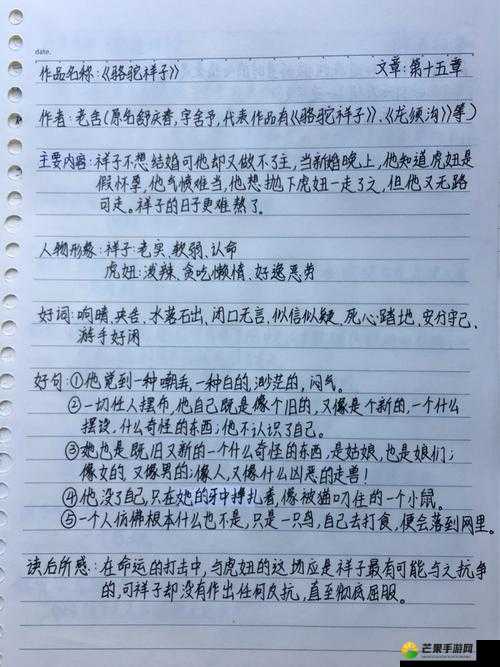 date.
作品名称:《骆驼祥子》 文章:第十五章
作者:老舍(原名舒庆春,字舍予,代表作品有《骆驼祥子》、《龙须沟》等)
主要内容:祥子不想结婚可他却又做不了主,当新婚晚上,他知道虎妞是
假怀孕,他气愤难当,他想抛下虎妞一走了之,但他又无路
可走。祥子的日子更难熬了。
人物形象:祥子:老实、软弱、认命
虎妞:泼辣、贪吃懒惰、好逸恶劳
好词:响晴、央告、水落石出、闭口无言、似信似疑、死心踏地、安分守己、
游手好闲
好句:①他觉到一种嘲弄,一种白的,渺茫的,闷气。
②一切任人摆布,他自己既是像个旧的,又像是个新的,一个什么
摆设,什么奇怪的东西;他不认识了自己。
③她也是既旧又新的一个什么奇怪的东西,是姑娘,也是娘们;
像女的,又像男的;像人,又像什么凶恶的走兽!
④他没了自己,只在她的牙中挣扎着,像被猫叼住的一个小鼠。
⑤一个人仿佛根本什么也不是,只是一只鸟,自己去打食,便会落到网里。
读后所感:在命运的打击中,与虎妞的这场应是祥子最有可能与之抗争
的,可祥子却没有作出任何反抗,直至彻底屈服。
芒果手游网